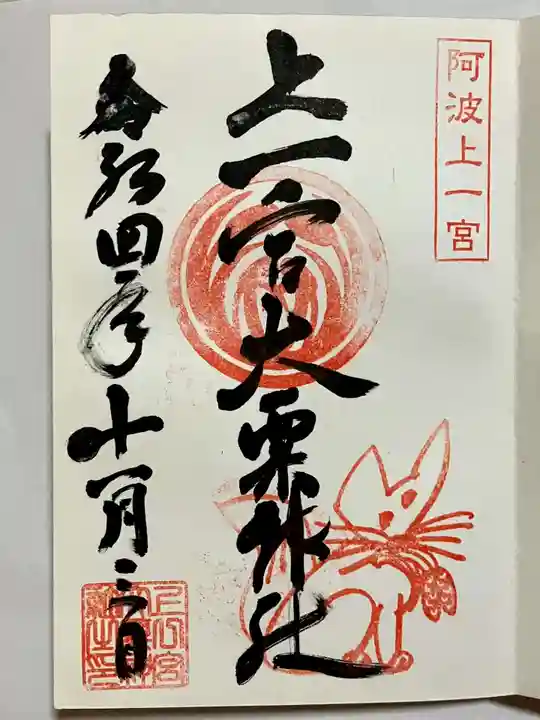 阿波上一宮
上一宮大粟神社
令和四年十一月三日